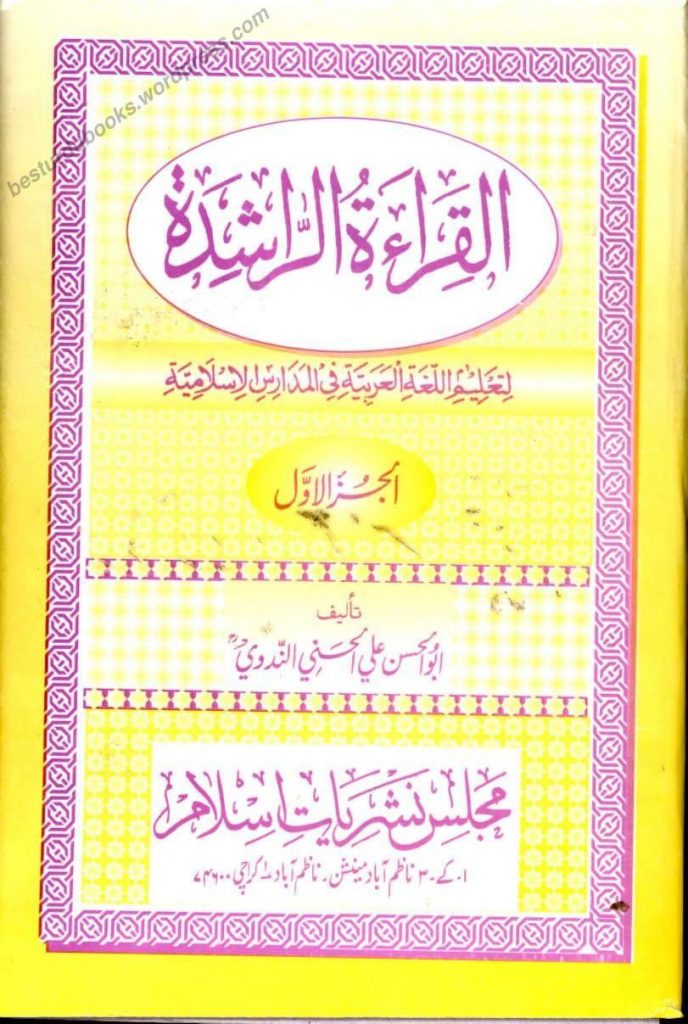 besturdubooks.wordpress.com
القِرَاءَةُ الرَّاشِدَة
لِتَعْلِيْمِ اللُّغَةِ الْعَرَبِيَّةِ فِي الْمَدَارِسِ الْاِسْلَامِيَّةِ
الجُزءُ الاوَّل
تأليف
ابو الحسن علي الحسني الندوي ؒ
مجلس نشریات اسلام
ا۔ کے۔ ۳ ناظم آباد مینشن۔ ناظم آباد ۱ کراچی ۷۴۶۰۰